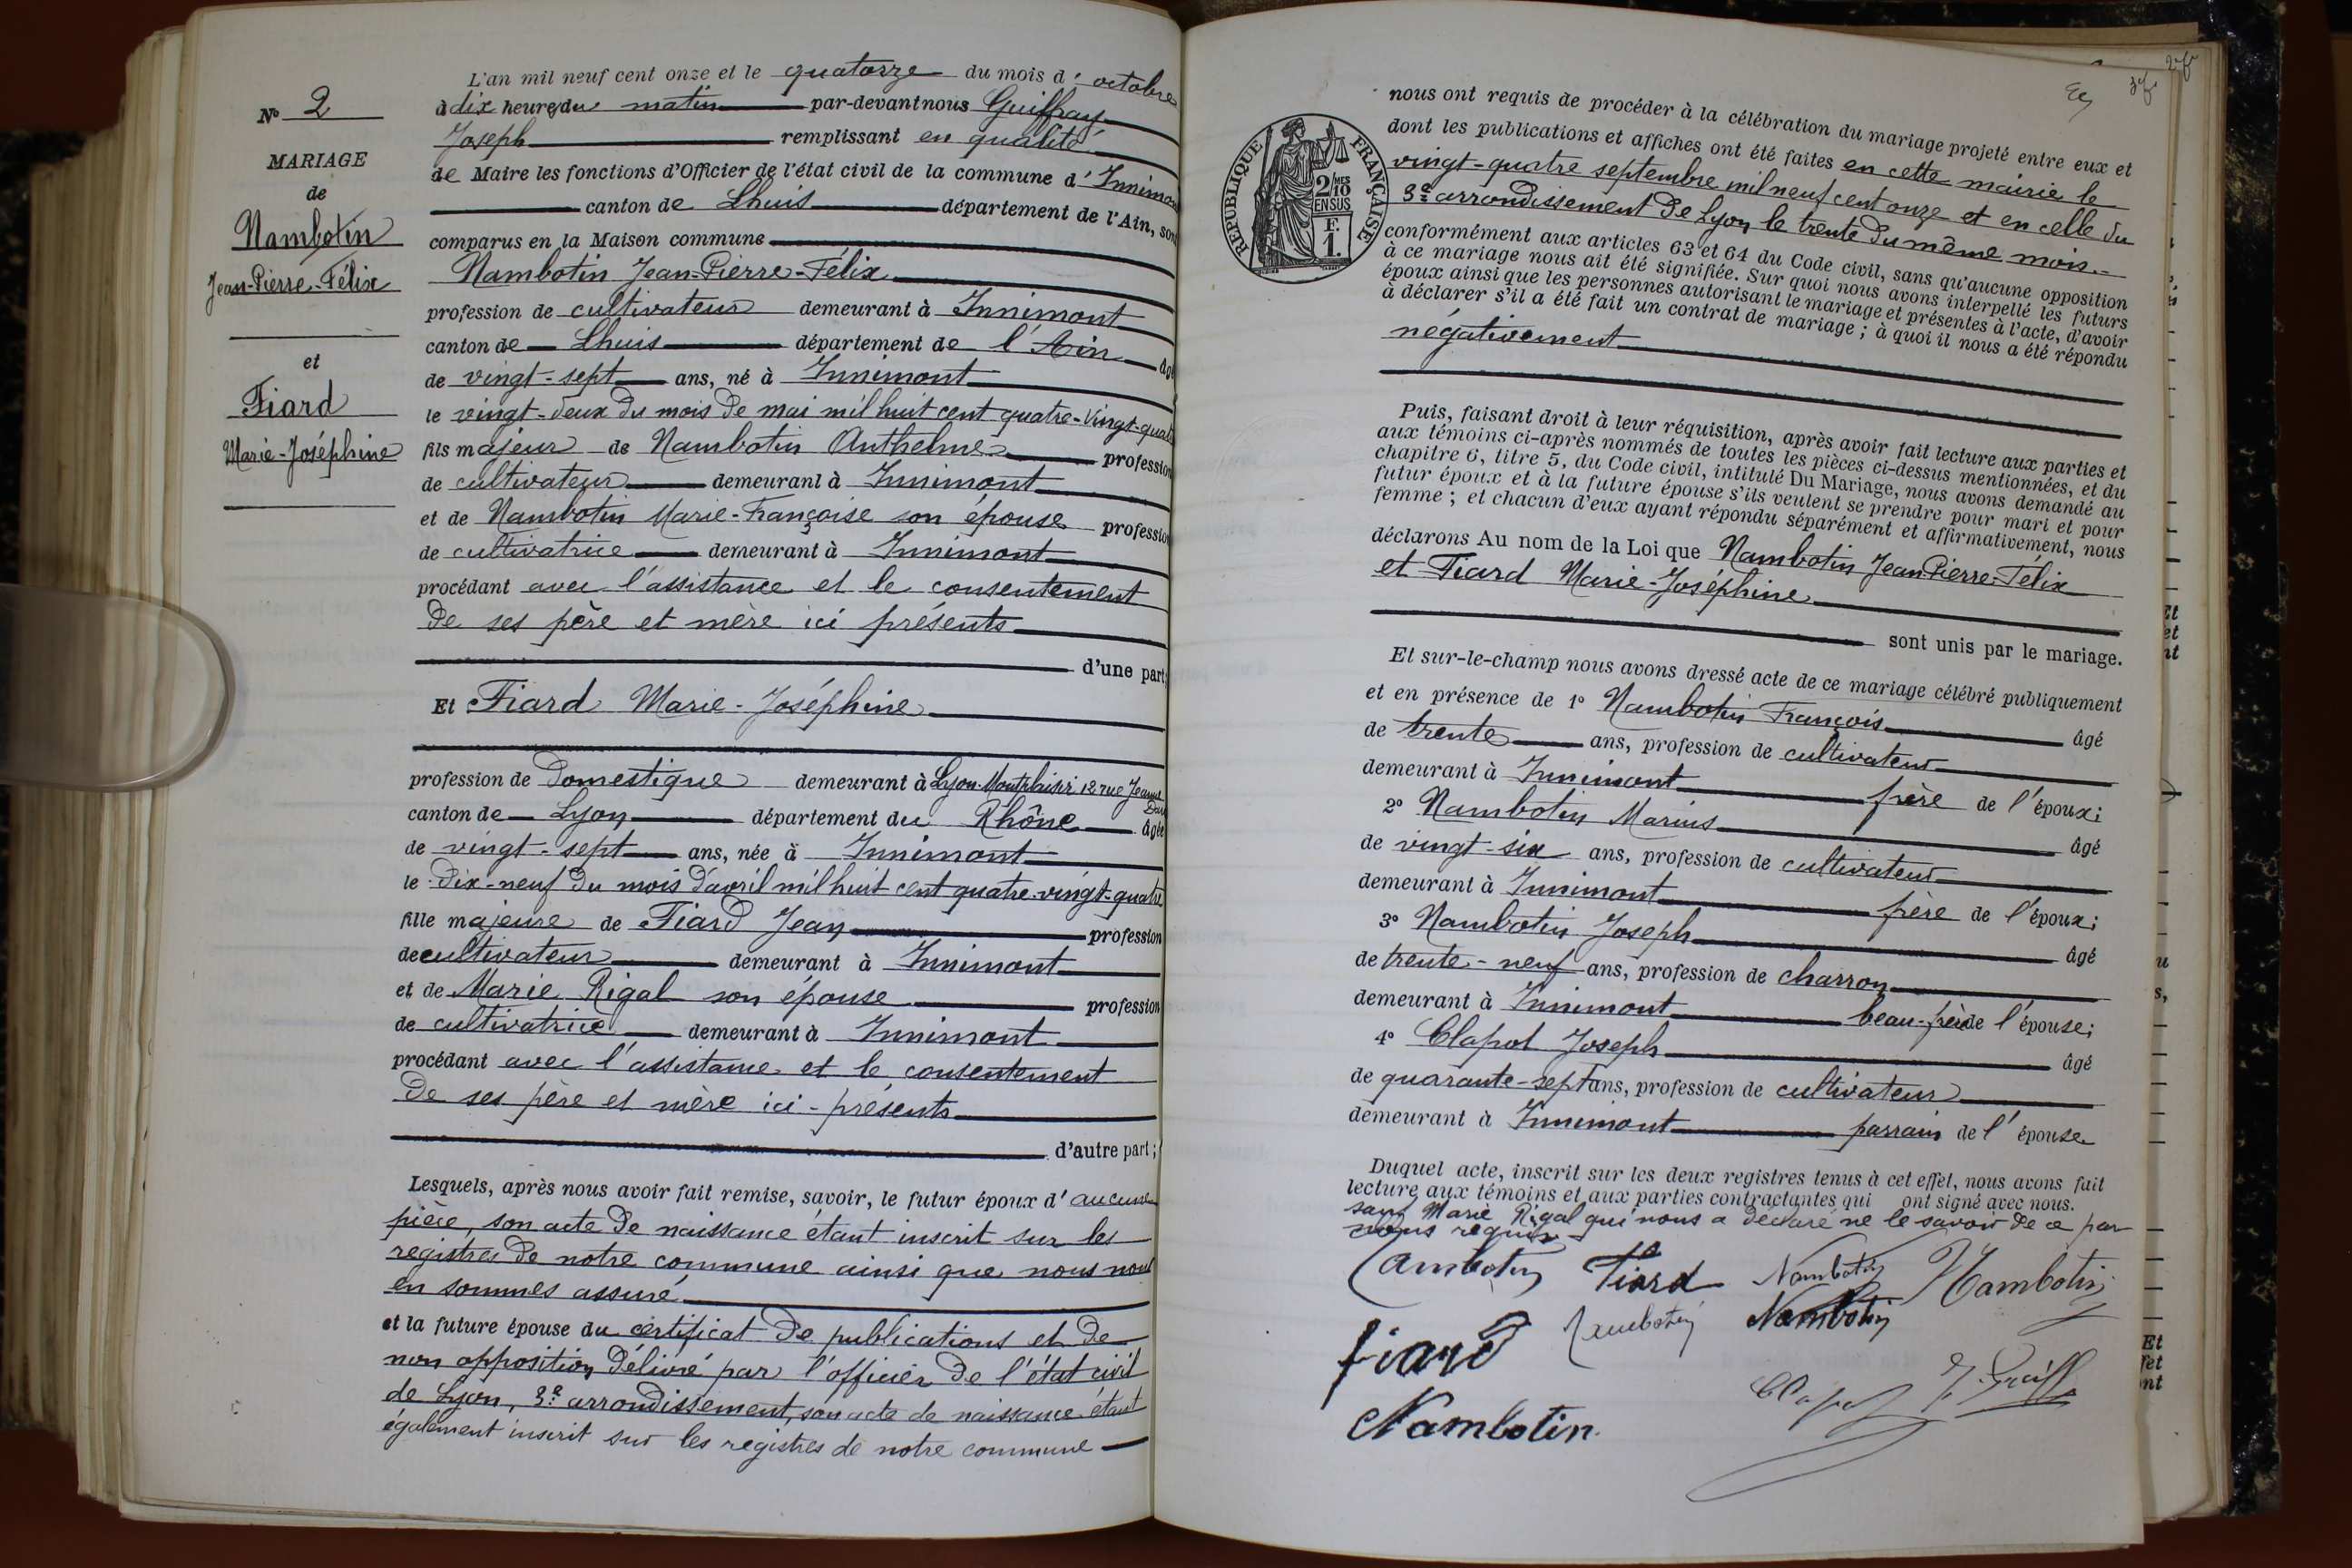 N° 2
MARIAGE
de
Nambotin
Jean-Pierre-Félix
et
Fiard
Marie-Joséphine
L'an mil neuf cent onze et le quatorze du mois d'octobre
à dix heures du matin par-devant nous Guiffray
Joseph remplissant en qualité
de Maire les fonctions d'Officier de l'état civil de la commune d'Innimont
canton de Lhuis département de l'Ain, sont
comparus en la Maison commune
Nambotin Jean-Pierre-Félix
profession de cultivateur demeurant à Innimont
canton de Lhuis département de l'Ain âgé
de vingt-sept ans, né à Innimont
le vingt-deux du mois de mai mil huit cent quatre-vingt-quatre
fils majeur de Nambotin Anthelme profession
de cultivateur demeurant à Innimont
et de Nambotin Marie-Françoise son épouse profession
de cultivatrice demeurant à Innimont
procédant avec l'assistance et le consentement
de ses père et mère ici présents
d'une part;
Et Fiard Marie-Joséphine
profession de domestique demeurant à Lyon-Montplaisir 12 rue Jeanne
Darc
canton de Lyon département du Rhône âgée
de vingt-sept ans, née à Innimont
le dix-neuf du mois d'avril mil huit cent quatre-vingt-quatre
fille majeure de Fiard Jean profession
de cultivateur demeurant à Innimont
et de Marie Rigal son épouse profession
de cultivatrice demeurant à Innimont
procédant avec l'assistance et le consentement
de ses père et mère ici-présents
d'autre part;
Lesquels, après nous avoir fait remise, savoir, le futur époux d'aucune
pièce, son acte de naissance étant inscrit sur les
registres de notre commune ainsi que nous nous
en sommes assuré
et la future épouse du certificat de publications et de
non opposition délivré par l'officier de l'état civil
de Lyon, 3e arrondissement, son acte de naissance étant
également inscrit sur les registres de notre commune
REPUBLIQUE FRANÇAISE
2/10 MES
EN SUS
F.
1.
nous ont requis de procéder à la célébration du mariage projeté entre eux et
dont les publications et affiches ont été faites en cette mairie le
vingt-quatre septembre mil neuf cent onze et en celle du
3e arrondissement de Lyon le trente du même mois.-
conformément aux articles 63 et 64 du Code civil, sans qu'aucune opposition
à ce mariage nous ait été signifiée. Sur quoi nous avons interpellé les futurs
époux ainsi que les personnes autorisant le mariage et présentes à l'acte, d'avoir
à déclarer s'il a été fait un contrat de mariage; à quoi il nous a été répondu
négativement
Puis, faisant droit à leur réquisition, après avoir fait lecture aux parties et
aux témoins ci-après nommés de toutes les pièces ci-dessus mentionnées, et du
chapitre 6, titre 5, du Code civil, intitulé Du Mariage, nous avons demandé au
futur époux et à la future épouse s'ils veulent se prendre pour mari et pour
femme; et chacun d'eux ayant répondu séparément et affirmativement, nous
déclarons Au nom de la Loi que Nambotin Jean-Pierre-Félix
et Fiard Marie-Joséphine
sont unis par le mariage.
Et sur-le-champ nous avons dressé acte de ce mariage célébré publiquement
et en présence de 1° Nambotin François âgé
de trente ans, profession de cultivateur
demeurant à Innimont frère de l'époux;
2° Nambotin Marius âgé
de vingt-six ans, profession de cultivateur
demeurant à Innimont frère de l'époux;
3° Nambotin Joseph âgé
de trente-neuf ans, profession de charron
demeurant à Innimont beau-frère de l'épouse;
4° Clapot Joseph âgé
de quarante-sept ans, profession de cultivateur
demeurant à Innimont parrain de l'épouse
Duquel acte, inscrit sur les deux registres tenus à cet effet, nous avons fait
lecture aux témoins et aux parties contractantes qui ont signé avec nous.
sauf Marie Rigal qui nous a déclaré ne le savoir de ce par
nous requis
Nambotin Fiard Nambotin Nambotin
Fiard Nambotin Nambotin
Clapot J. Guiff
Nambotin